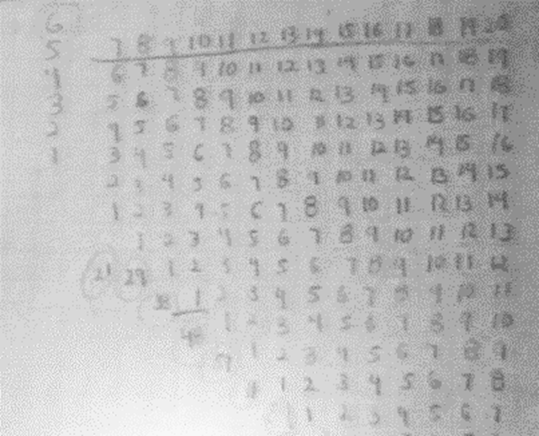 6
5 7 8 9 10 11 12 13 14 15 16 17 18 19 20
4 6 7 8 9 10 11 12 13 14 15 16 17 18 19
3 5 6 7 8 9 10 11 12 13 14 15 16 17 18
2 4 5 6 7 8 9 10 11 12 13 14 15 16 17
1 3 4 5 6 7 8 9 10 11 12 13 14 15 16
2 3 4 5 6 7 8 9 10 11 12 13 14 15
1 2 3 4 5 6 7 8 9 10 11 12 13 14
1 2 3 4 5 6 7 8 9 10 11 12 13
21 29 1 2 3 4 5 6 7 8 9 10 11 12
1 2 3 4 5 6 7 8 9 10 11
1 2 3 4 5 6 7 8 9 10
1 2 3 4 5 6 7 8 9
1 2 3 4 5 6 7 8
1 2 3 4 5 6 7